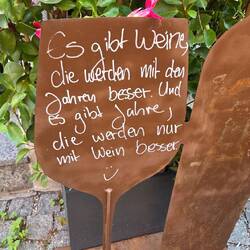 Es gibt Weine,
die werden mit den
Jahren besser. Und
es gibt Jahre,
die werden nur
mit Wein besser